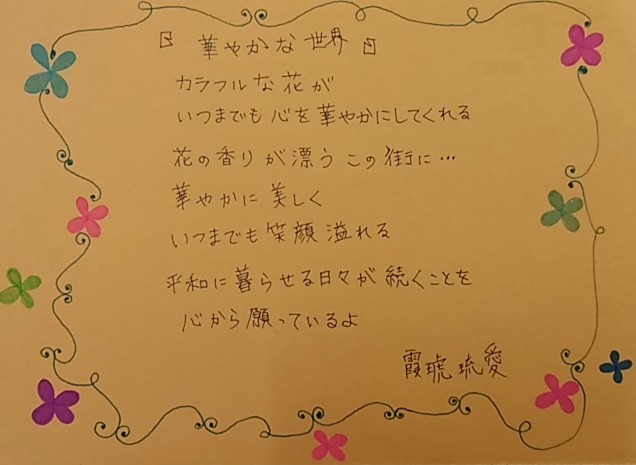 『 華やかな世界 』
カラフルな花が
いつまでも心を華やかにしてくれる
花の香りが漂うこの街に…
華やかに美しく
いつまでも笑顔溢れる
平和に暮らせる日々が続くことを
心から願っているよ
霞琥琉愛